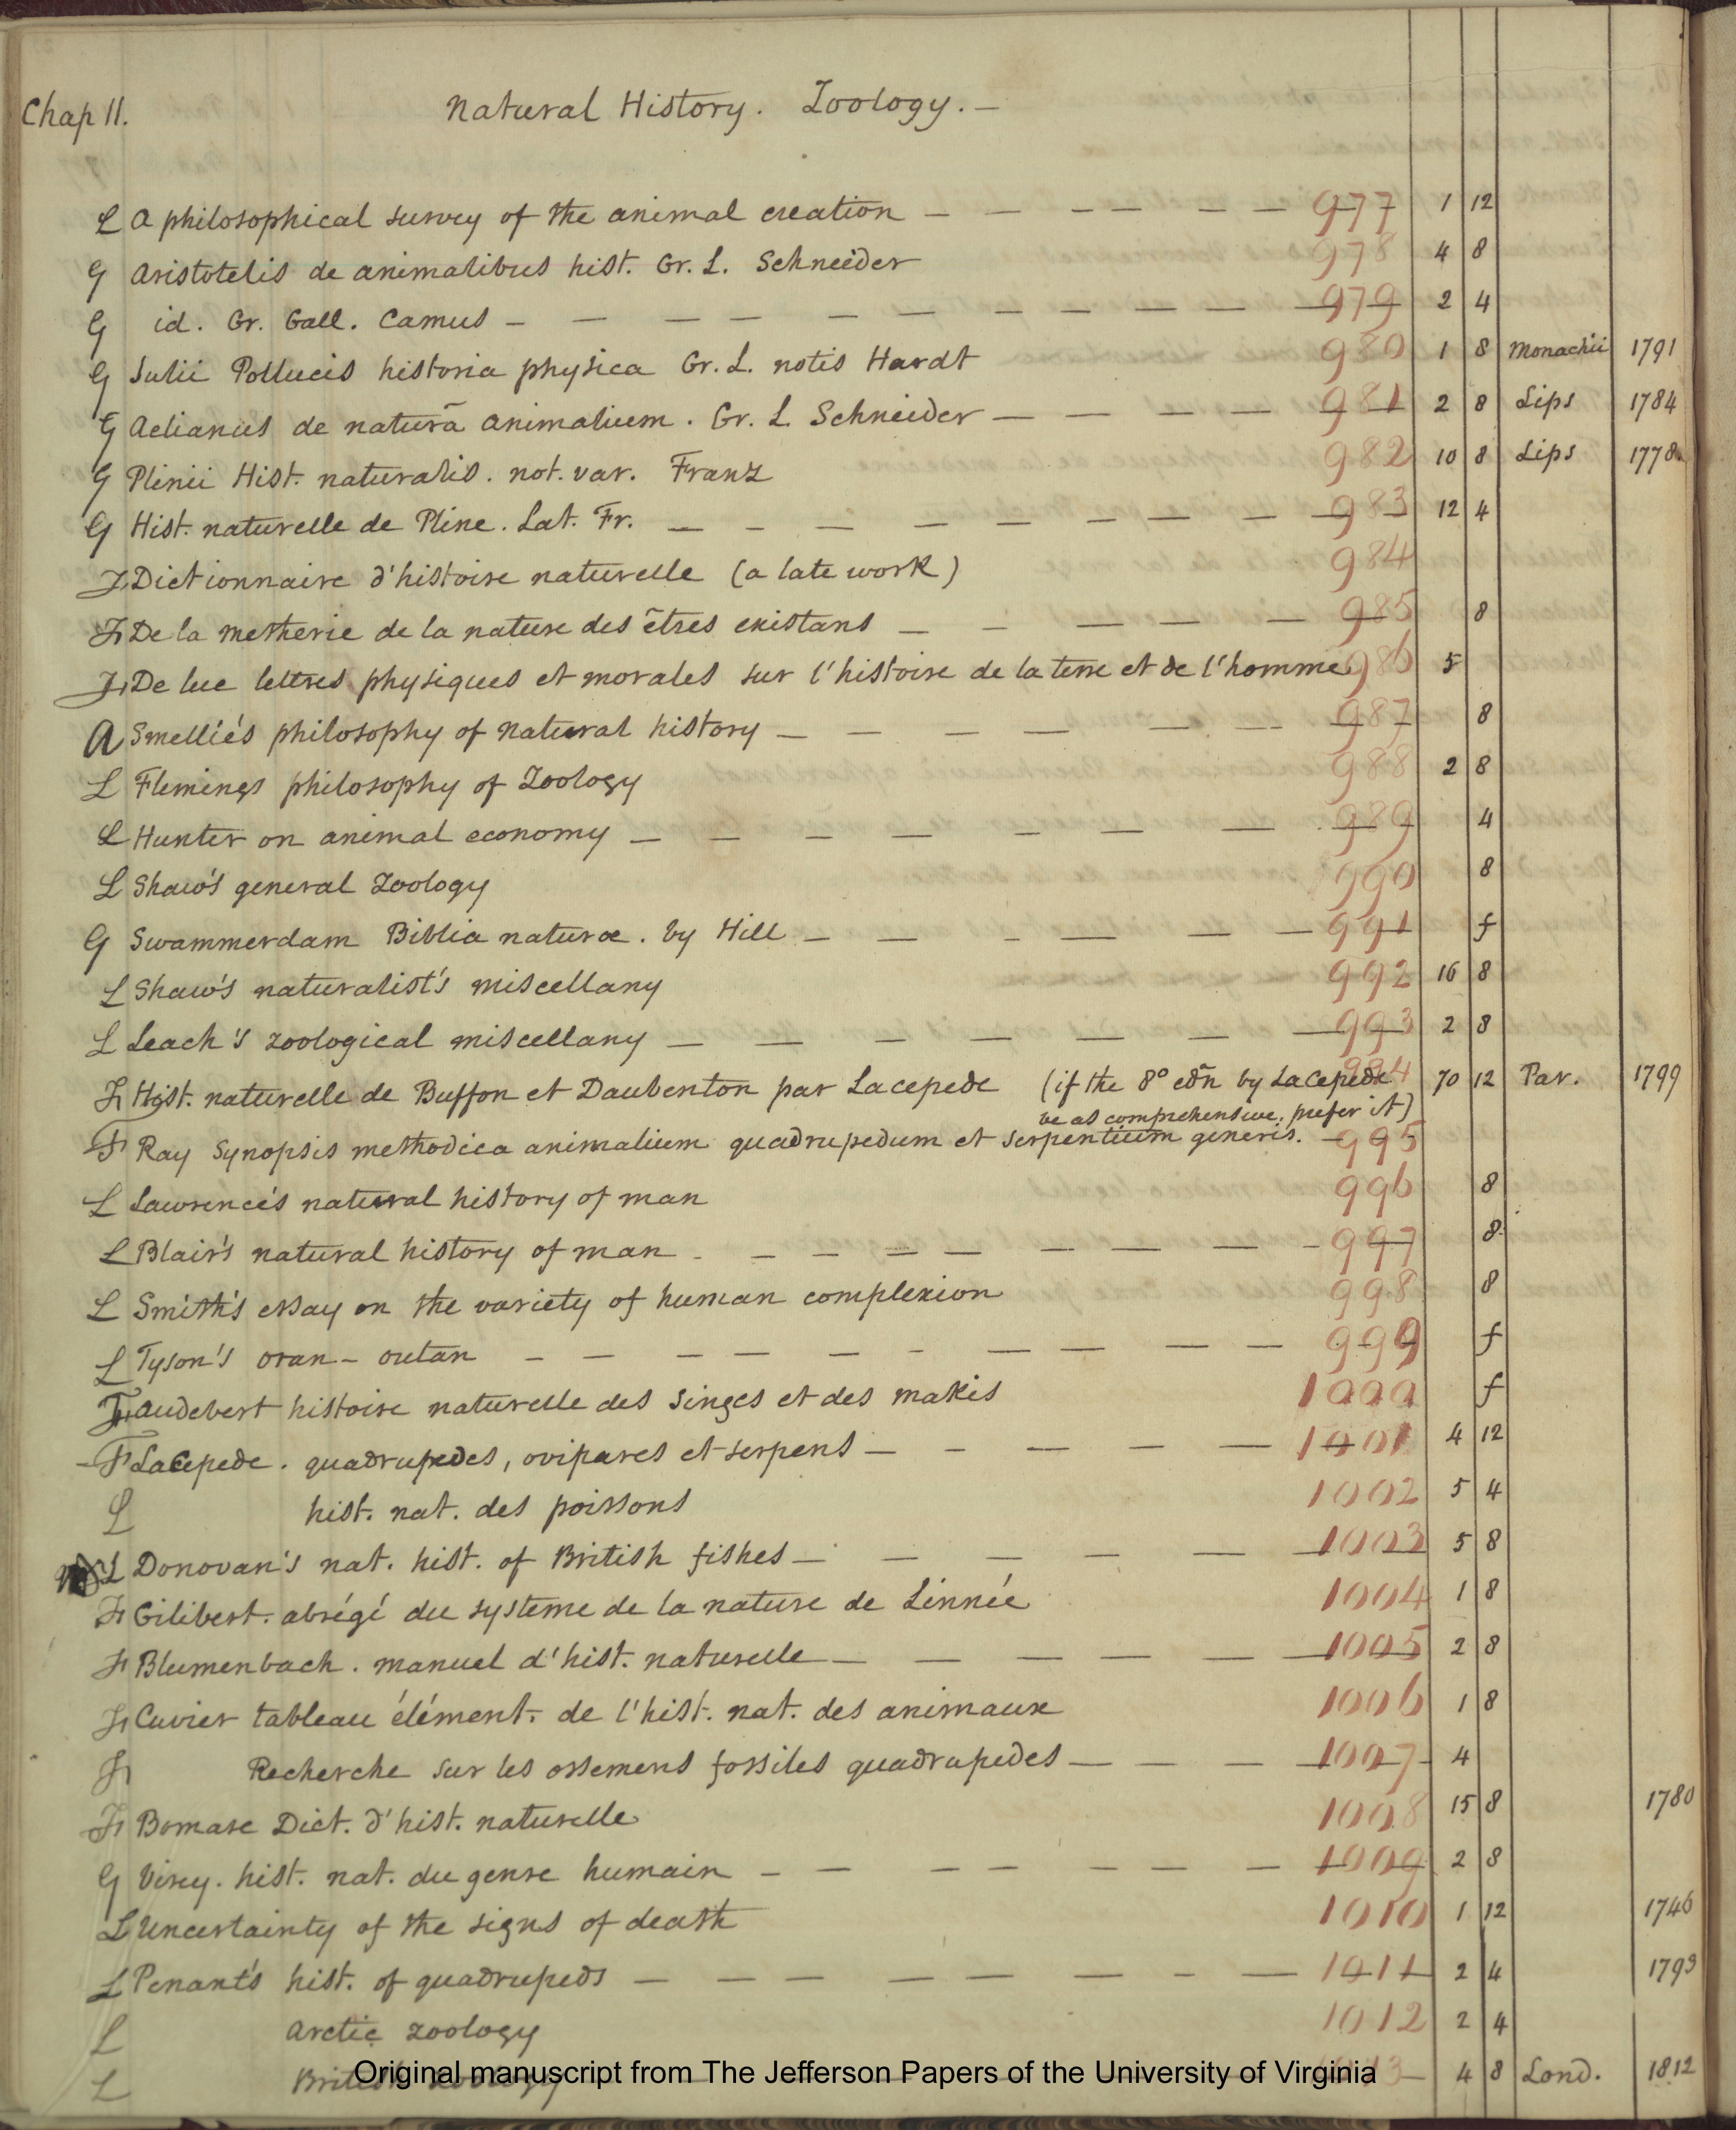 Chap 11. Natural History. Zoology. —
L A philosophical survey of the animal creation — — — — — — 977 1 12
G Aristotelis de animalibus hist. Gr. L. Schneider 978 4 8
G id. Gr. Gall. Camus — — — — — — — — — — 979 2 4
G Julii Pollucis historia physica Gr. L. notis Hardt 980 1 8 Monachii 1791
G Aelianus de naturâ animalium. Gr. L. Schneider — — — — 981 2 8 Lips 1784
G Plinii Hist. naturalis. not. var. Franz 982 10 8 Lips 1778
G Hist. naturelle de Pline. Lat. Fr. — — — — — — — — 983 12 4
F Dictionnaire d'histoire naturelle (a late work) 984
F De la metherie de la nature des êtres existans — — — — — 985 8
F De luc lettres physiques et morales sur l'histoire de la terre et de l'homme 986 5
A Smellie's philosophy of natural history — — — — — — 987 8
L Flemings philosophy of Zoology 988 2 8
L Hunter on animal economy — — — — — — — 989 4
L Shaw's general Zoology 990 8
G Swammerdam Biblia naturæ. by Hill — — — — — — 991 f
L Shaw's naturalist's miscellany 992 16 8
L Leach's zoological miscellany — — — — — — — 993 2 8
F Hist. naturelle de Buffon et Daubenton par Lacepede (if the 8° edn by LaCepede 994 70 12 Par. 1799
be as comprehensive, prefer it)
F Ray Synopsis methodica animalium quadrupedum et serpentium generis. — 995
L Lawrence's natural history of man 996 8
L Blair's natural history of man — — — — — — — — 997 8
L Smith's essay on the variety of human complexion 998 8
L Tyson's oran-outan — — — — — — — — — — 999 f
F Audebert histoire naturelle des Singes et des makis 1000 f
F LaCepede. quadrupedes, ovipares et serpens — — — — — 1001 4 12
L hist. nat. des poissons 1002 5 4
L Donovan's nat. hist. of British fishes — — — — — — 1003 5 8
F Gilibert. abrégé du systeme de la nature de Linnée 1004 1 8
F Blumenbach. manuel d'hist. naturelle — — — — — — 1005 2 8
F Cuvier tableau élément. de l'hist. nat. des animaux 1006 1 8
F Recherche sur les ossemens fossiles quadrupedes — — — — 1007 4
F Bomare Dict. d'hist. naturelle 1008 15 8 1780
G Virey. hist. nat. du genre humain — — — — — — — — 1009 2 8
L Uncertainty of the signs of death 1010 1 12 1746
L Penant's hist. of quadrupeds — — — — — — — — 1011 2 4 1793
L Arctic zoology 1012 2 4
L British zoology 1013 4 8 Lond. 1812
Original manuscript from The Jefferson Papers of the University of Virginia